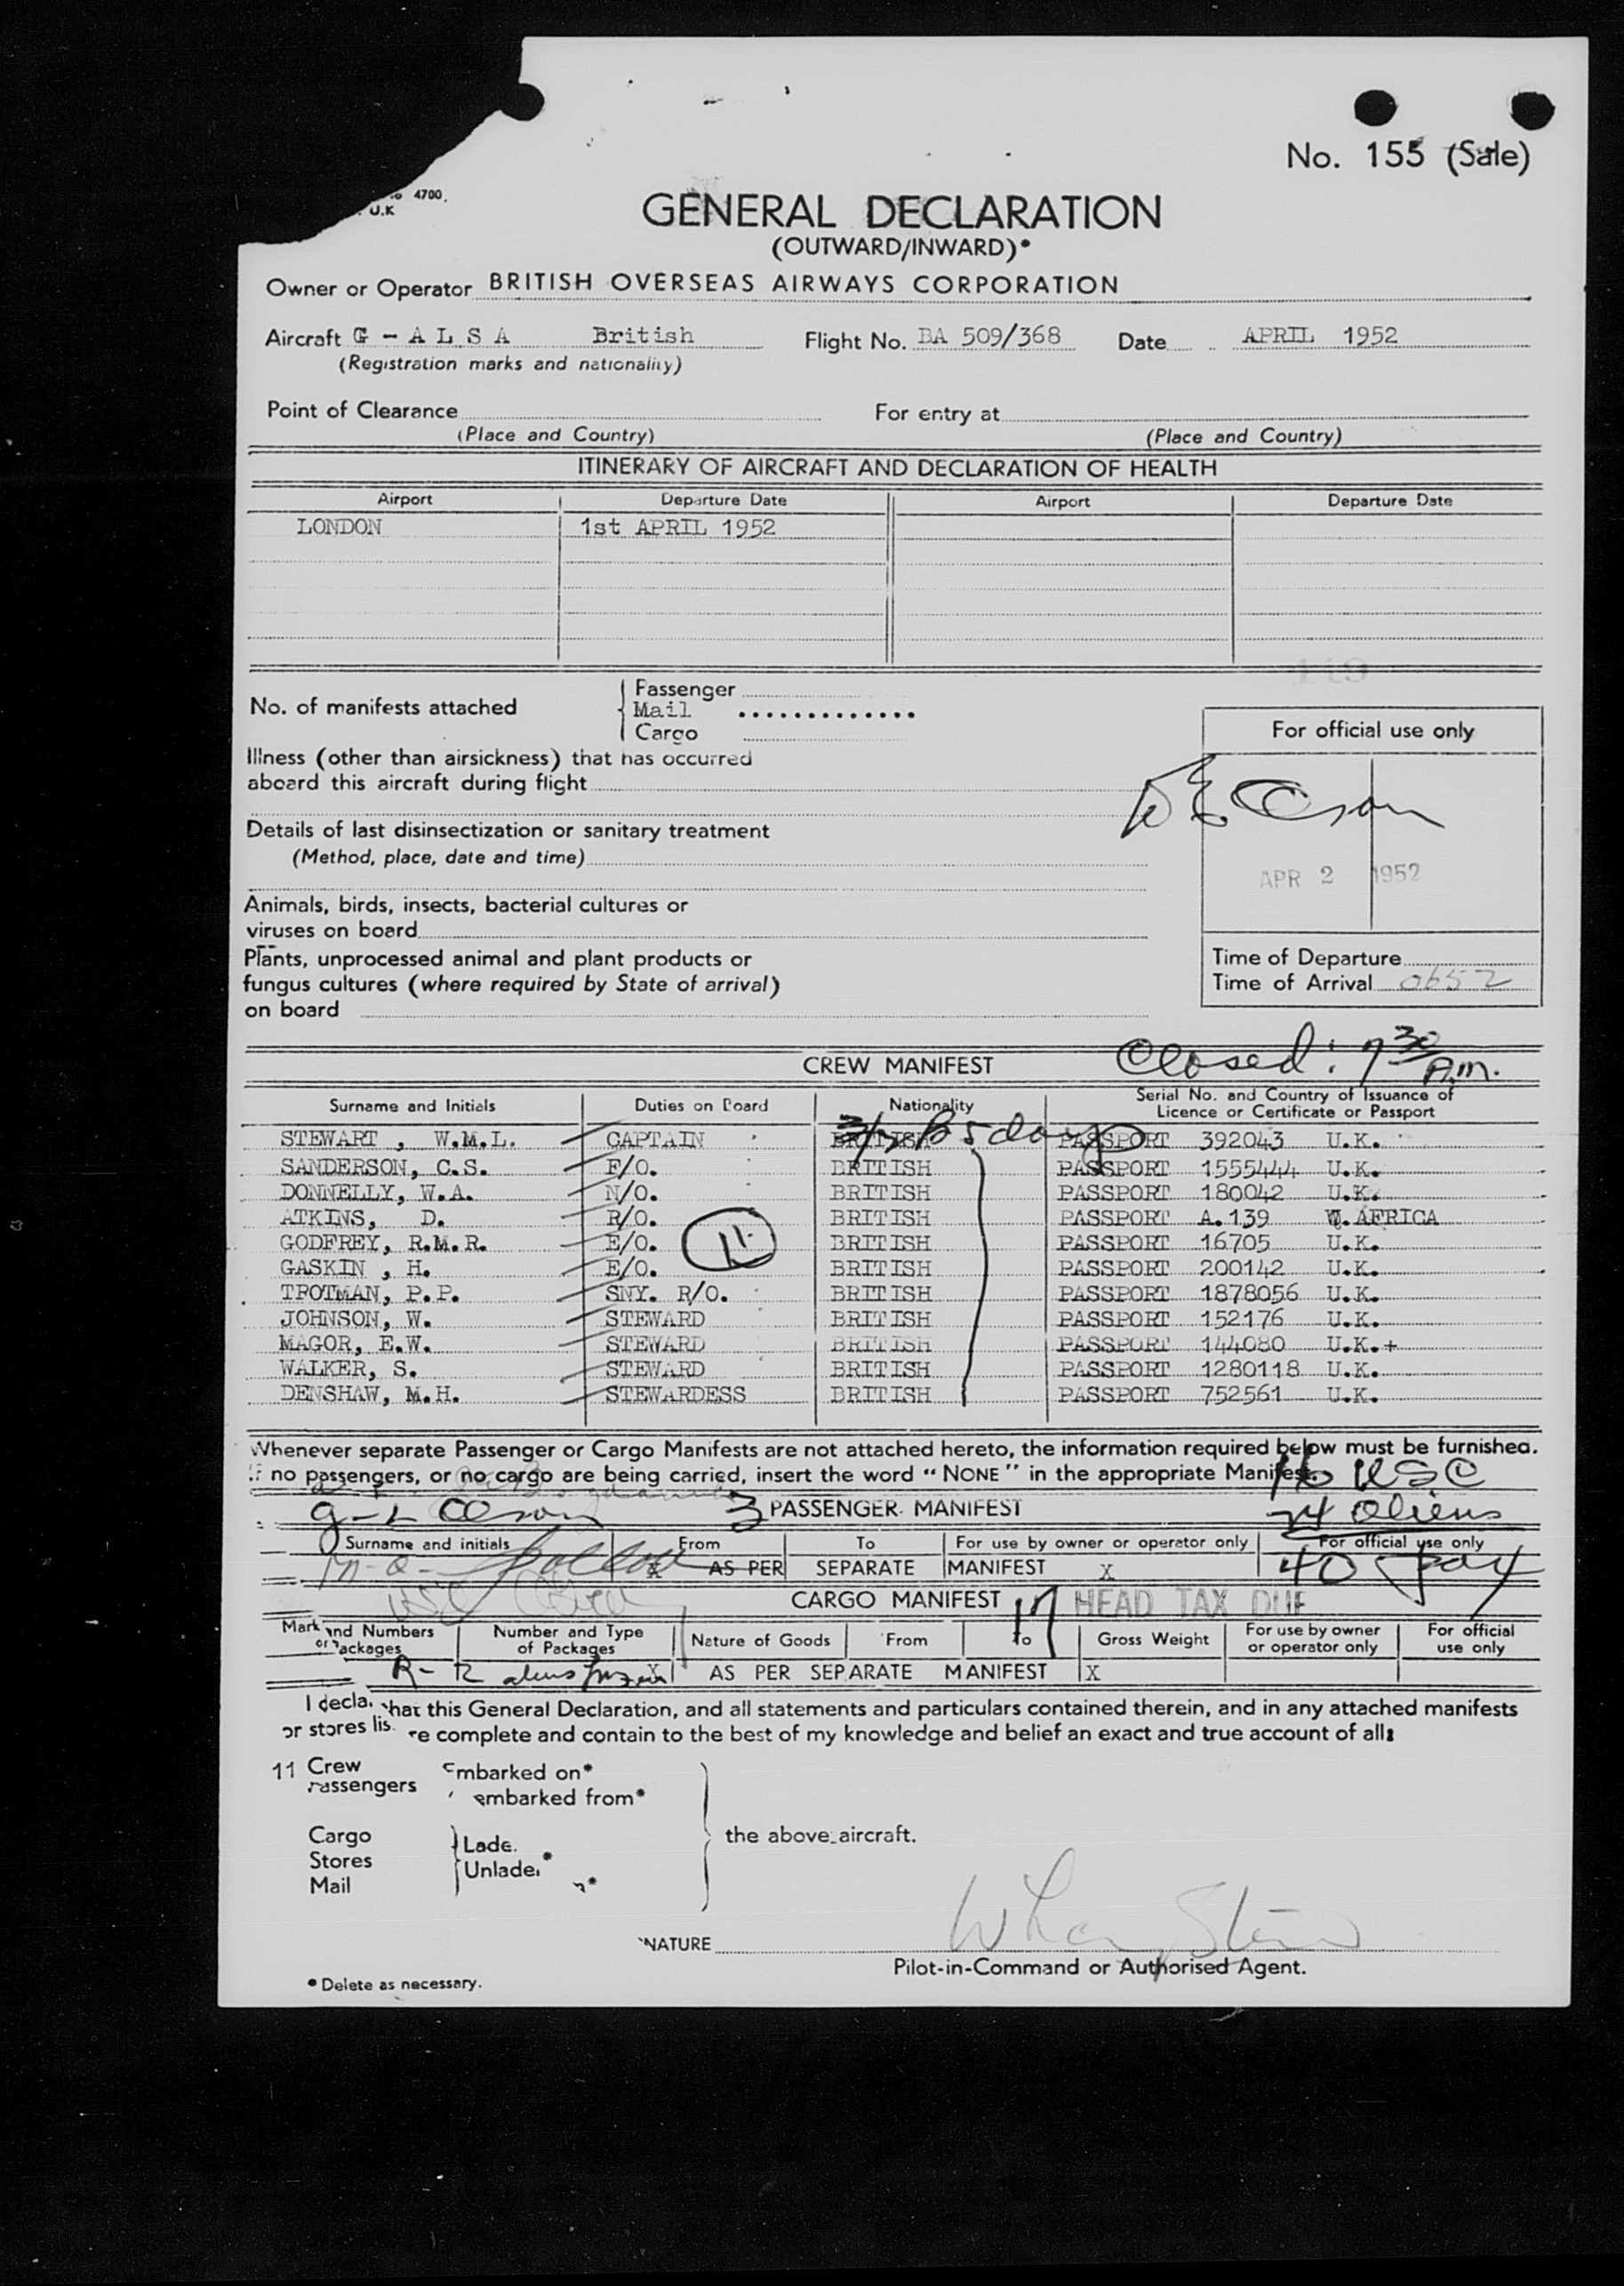 No. 155 (Sale)
4700.
U.K
GENERAL DECLARATION
(OUTWARD/INWARD)*
Owner or Operator BRITISH OVERSEAS AIRWAYS CORPORATION
Aircraft G - A L S A British Flight No. BA 509/368 Date APRIL 1952
(Registration marks and nationality)
Point of Clearance For entry at
(Place and Country) (Place and Country)
ITINERARY OF AIRCRAFT AND DECLARATION OF HEALTH
Airport Departure Date Airport Departure Date
LONDON 1st APRIL 1952
No. of manifests attached
Passenger
Mail .............
Cargo
For official use only
Illness (other than airsickness) that has occurred
aboard this aircraft during flight
Details of last disinsectization or sanitary treatment
(Method, place, date and time)
APR 2 1952
Animals, birds, insects, bacterial cultures or
viruses on board
Plants, unprocessed animal and plant products or
fungus cultures (where required by State of arrival)
on board
Time of Departure
Time of Arrival 0652
CREW MANIFEST Closed: 7 30 A.m.
Surname and Initials Duties on Board Nationality Serial No. and Country of Issuance of
Licence or Certificate or Passport
STEWART , W.M.L. CAPTAIN BRITISH PASSPORT 392043 U.K.
SANDERSON, C.S. F/O. BRITISH PASSPORT 1555444 U.K.
DONNELLY, W.A. N/O. BRITISH PASSPORT 180042 U.K.
ATKINS, D. R/O. BRITISH PASSPORT A.139 W.AFRICA
GODFREY, R.M.R. E/O. 11 BRITISH PASSPORT 16705 U.K.
GASKIN , H. E/O. BRITISH PASSPORT 200142 U.K.
TROTMAN, P.P. SNY. R/O. BRITISH PASSPORT 1878056 U.K.
JOHNSON, W. STEWARD BRITISH PASSPORT 152176 U.K.
MAGOR, E.W. STEWARD BRITISH PASSPORT 144080 U.K.+
WALKER, S. STEWARD BRITISH PASSPORT 1280118 U.K.
DENSHAW, M.H. STEWARDESS BRITISH PASSPORT 752561 U.K.
Whenever separate Passenger or Cargo Manifests are not attached hereto, the information required below must be furnished.
If no passengers, or no cargo are being carried, insert the word “ NONE ” in the appropriate Manifest.
16 USC
3 PASSENGER MANIFEST 24 aliens
Surname and initials From To For use by owner or operator only For official use only
X AS PER SEPARATE MANIFEST X 40 pax
CARGO MANIFEST 17 HEAD TAX DUE
Mark and Numbers or Packages Number and Type of Packages Nature of Goods From To Gross Weight For use by owner or operator only For official use only
X AS PER SEPARATE MANIFEST X
I decla that this General Declaration, and all statements and particulars contained therein, and in any attached manifests
or stores lis re complete and contain to the best of my knowledge and belief an exact and true account of all:
11 Crew embarked on*
Passengers embarked from*
the above aircraft.
Cargo
Stores
Mail
Lade
Unlade *
NATURE
Pilot-in-Command or Authorised Agent.
* Delete as necessary.